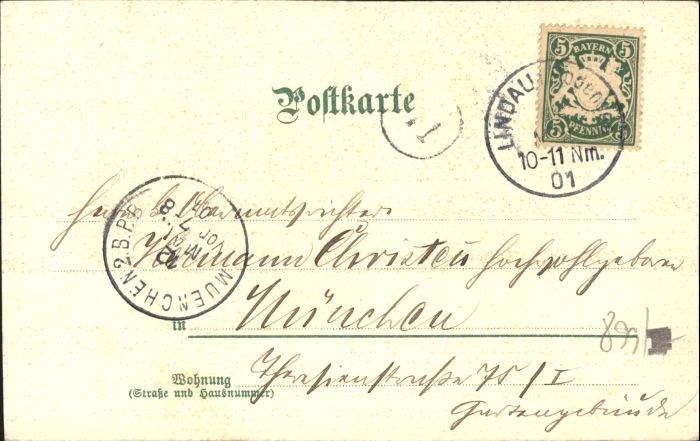 Postkarte
5 BAYERN 5
5 PFENNIG 5
LINDAU
10-11 Nm.
01
1
MUENCHEN 2 B.P.B.
Vor.
7
8
Herrn Oberamtsrichter
Hermann Christen Hochwohlgeboren
in München
Wohnung
(Straße und Hausnummer)
Theresienstraße 75/I
Gartengebäude